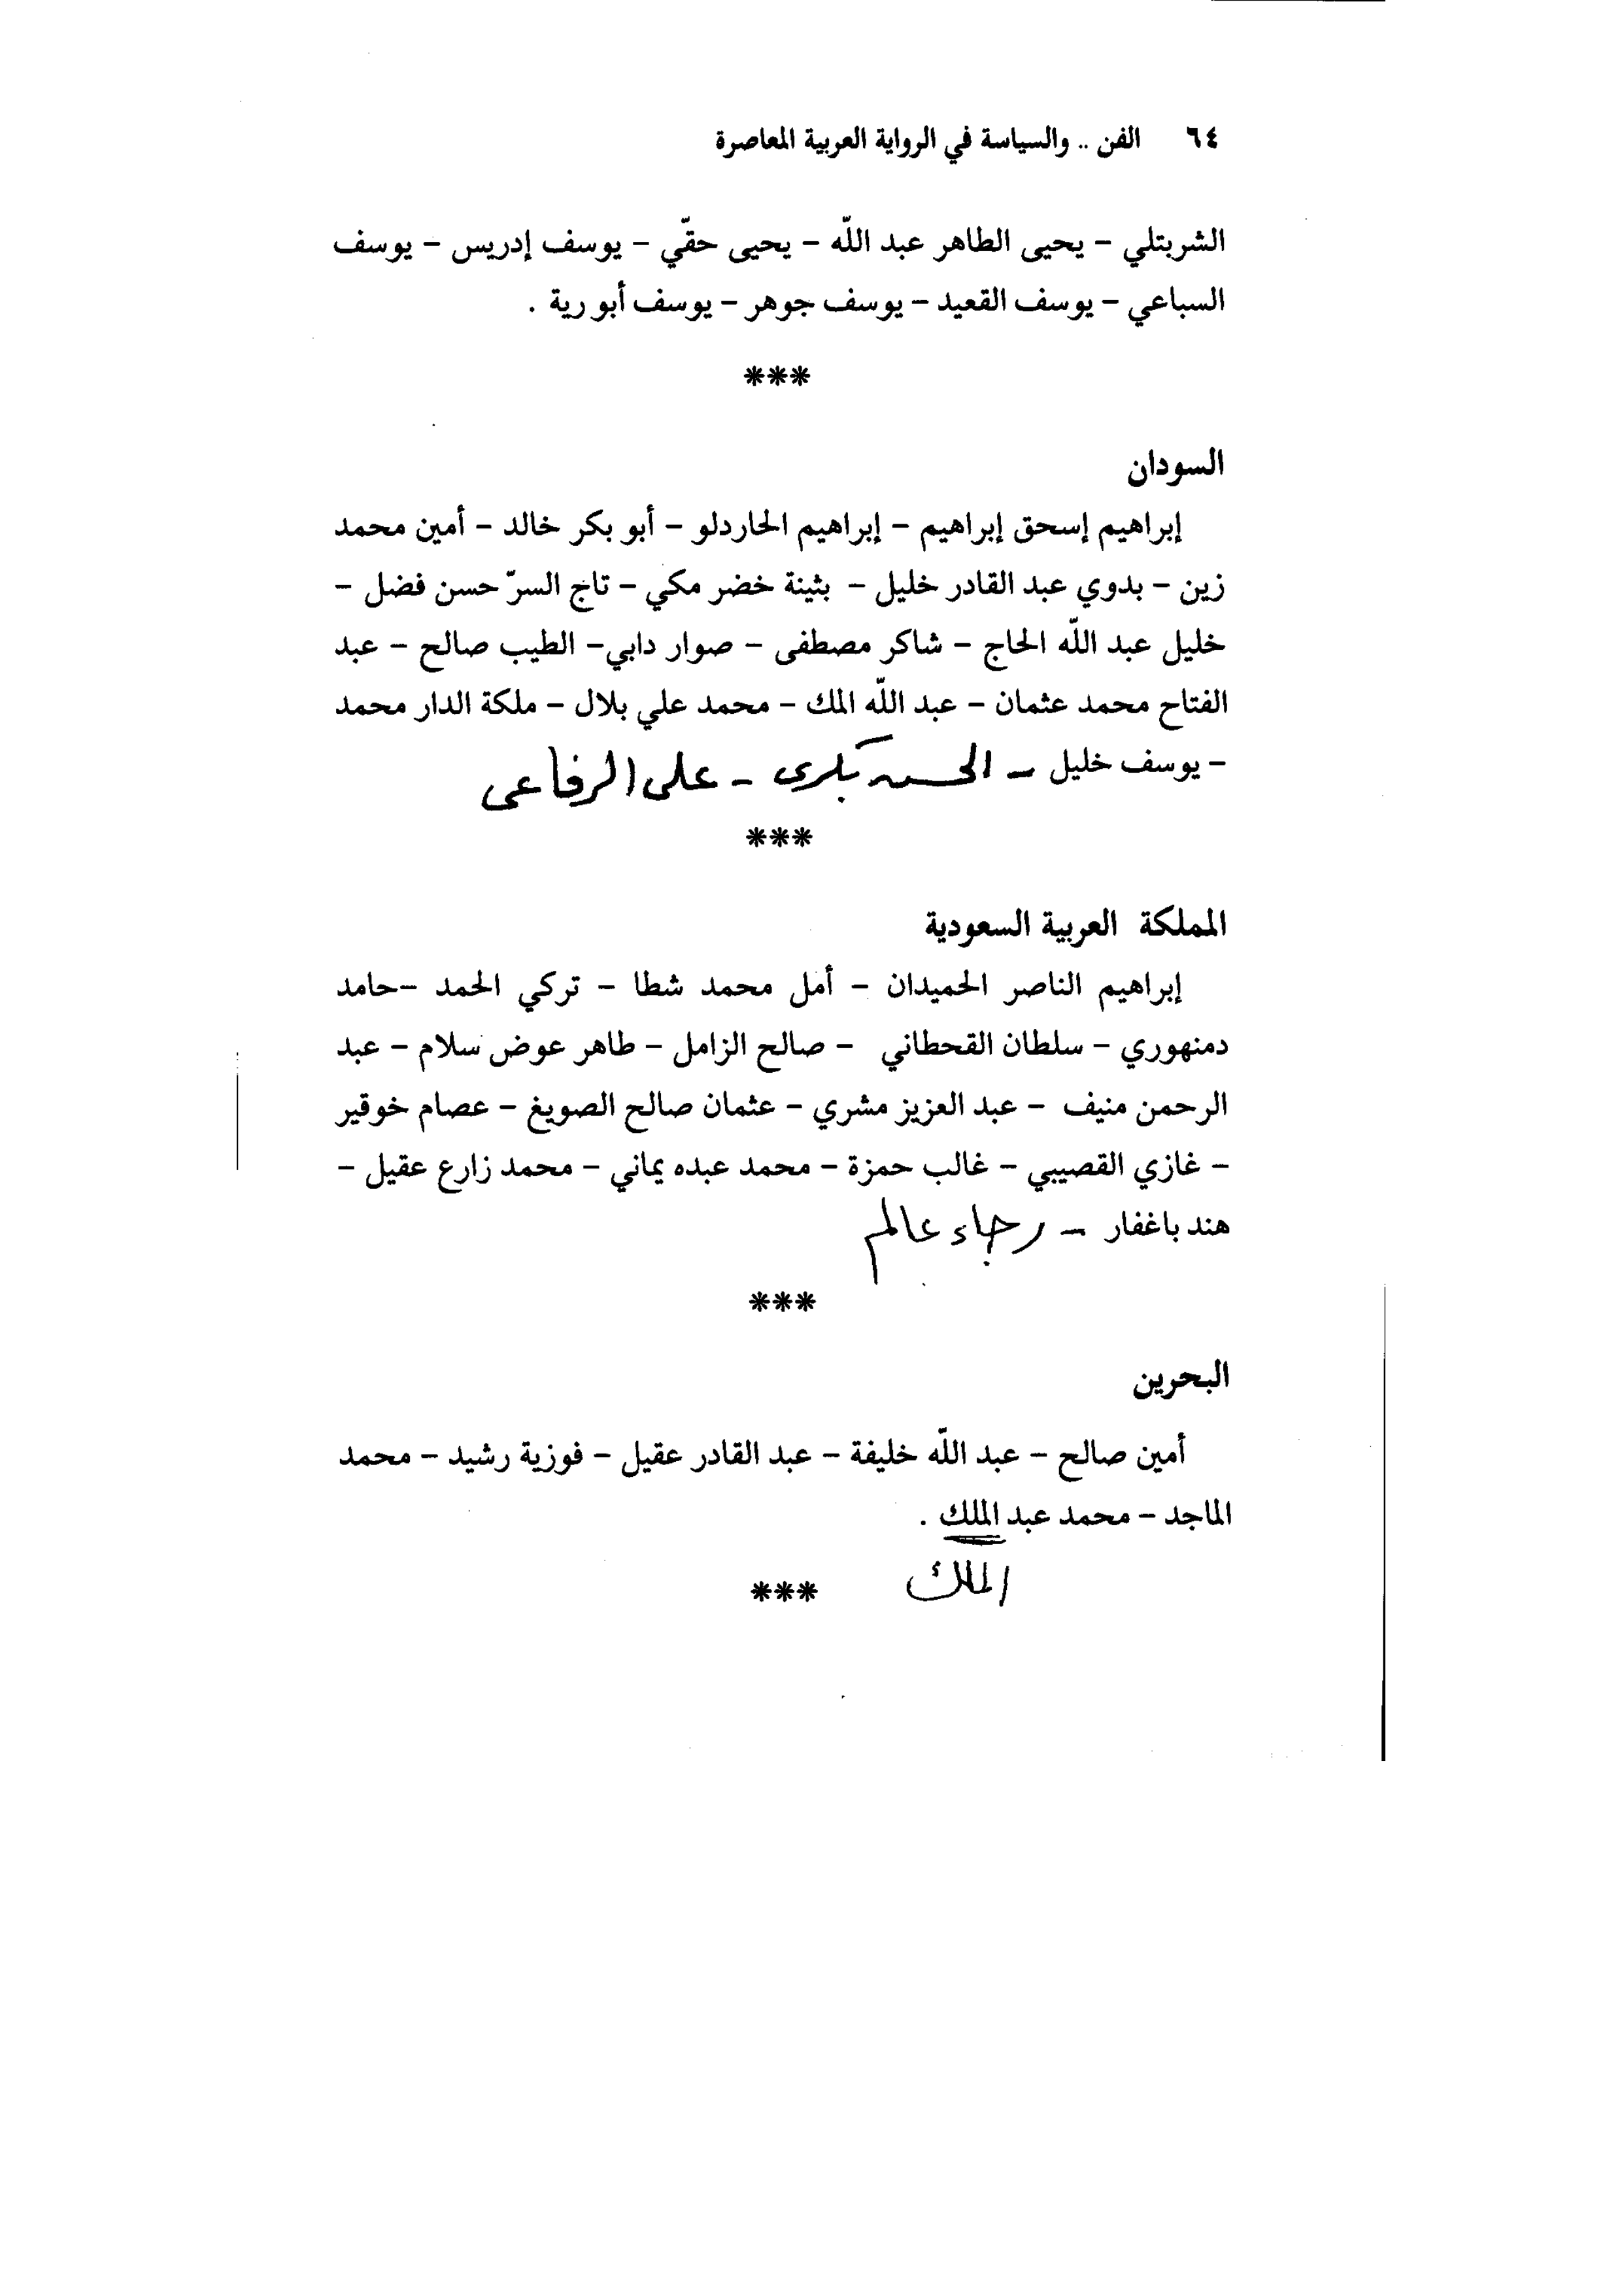 ٦٤ الفن .. والسياسة في الرواية العربية المعاصرة
الشربتلي – يحيى الطاهر عبد اللّه – يحيى حقّي – يوسف إدريس – يوسف
السباعي – يوسف القعيد – يوسف جوهر – يوسف أبو رية .
***
السودان
إبراهيم إسحق إبراهيم – إبراهيم الحاردلو – أبو بكر خالد – أمين محمد
زين – بدوي عبد القادر خليل – بثينة خضر مكي – تاج السرّ حسن فضل –
خليل عبد اللّه الحاج – شاكر مصطفى – صوار دابي – الطيب صالح – عبد
الفتاح محمد عثمان – عبد اللّه الملك – محمد علي بلال – ملكة الدار محمد
– يوسف خليل – الحسن بكرى – على الرفاعى
***
المملكة العربية السعودية
إبراهيم الناصر الحميدان – أمل محمد شطا – تركي الحمد –حامد
دمنهوري – سلطان القحطاني – صالح الزامل – طاهر عوض سلام – عبد
الرحمن منيف – عبد العزيز مشري – عثمان صالح الصويغ – عصام خوقير
– غازي القصيبي – غالب حمزة – محمد عبده يماني – محمد زارع عقيل –
هند باغفار – رجاء عالم
***
البحرين
أمين صالح – عبد اللّه خليفة – عبد القادر عقيل – فوزية رشيد – محمد
الماجد – محمد عبد الملك .
الملك
***